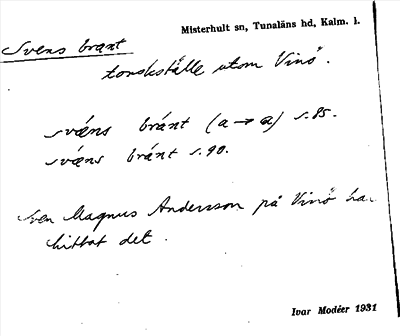 Misterhult sn, Tunaläns hd, Kalm. l.
Svens brant
torskställe utom Vinö.
svǽns bránt (a → ɑ) s. 85.
svǽns bránt s. 90.
Sven Magnus Andersson på Vinö ha
hittat det.
Ivar Modéer 1931